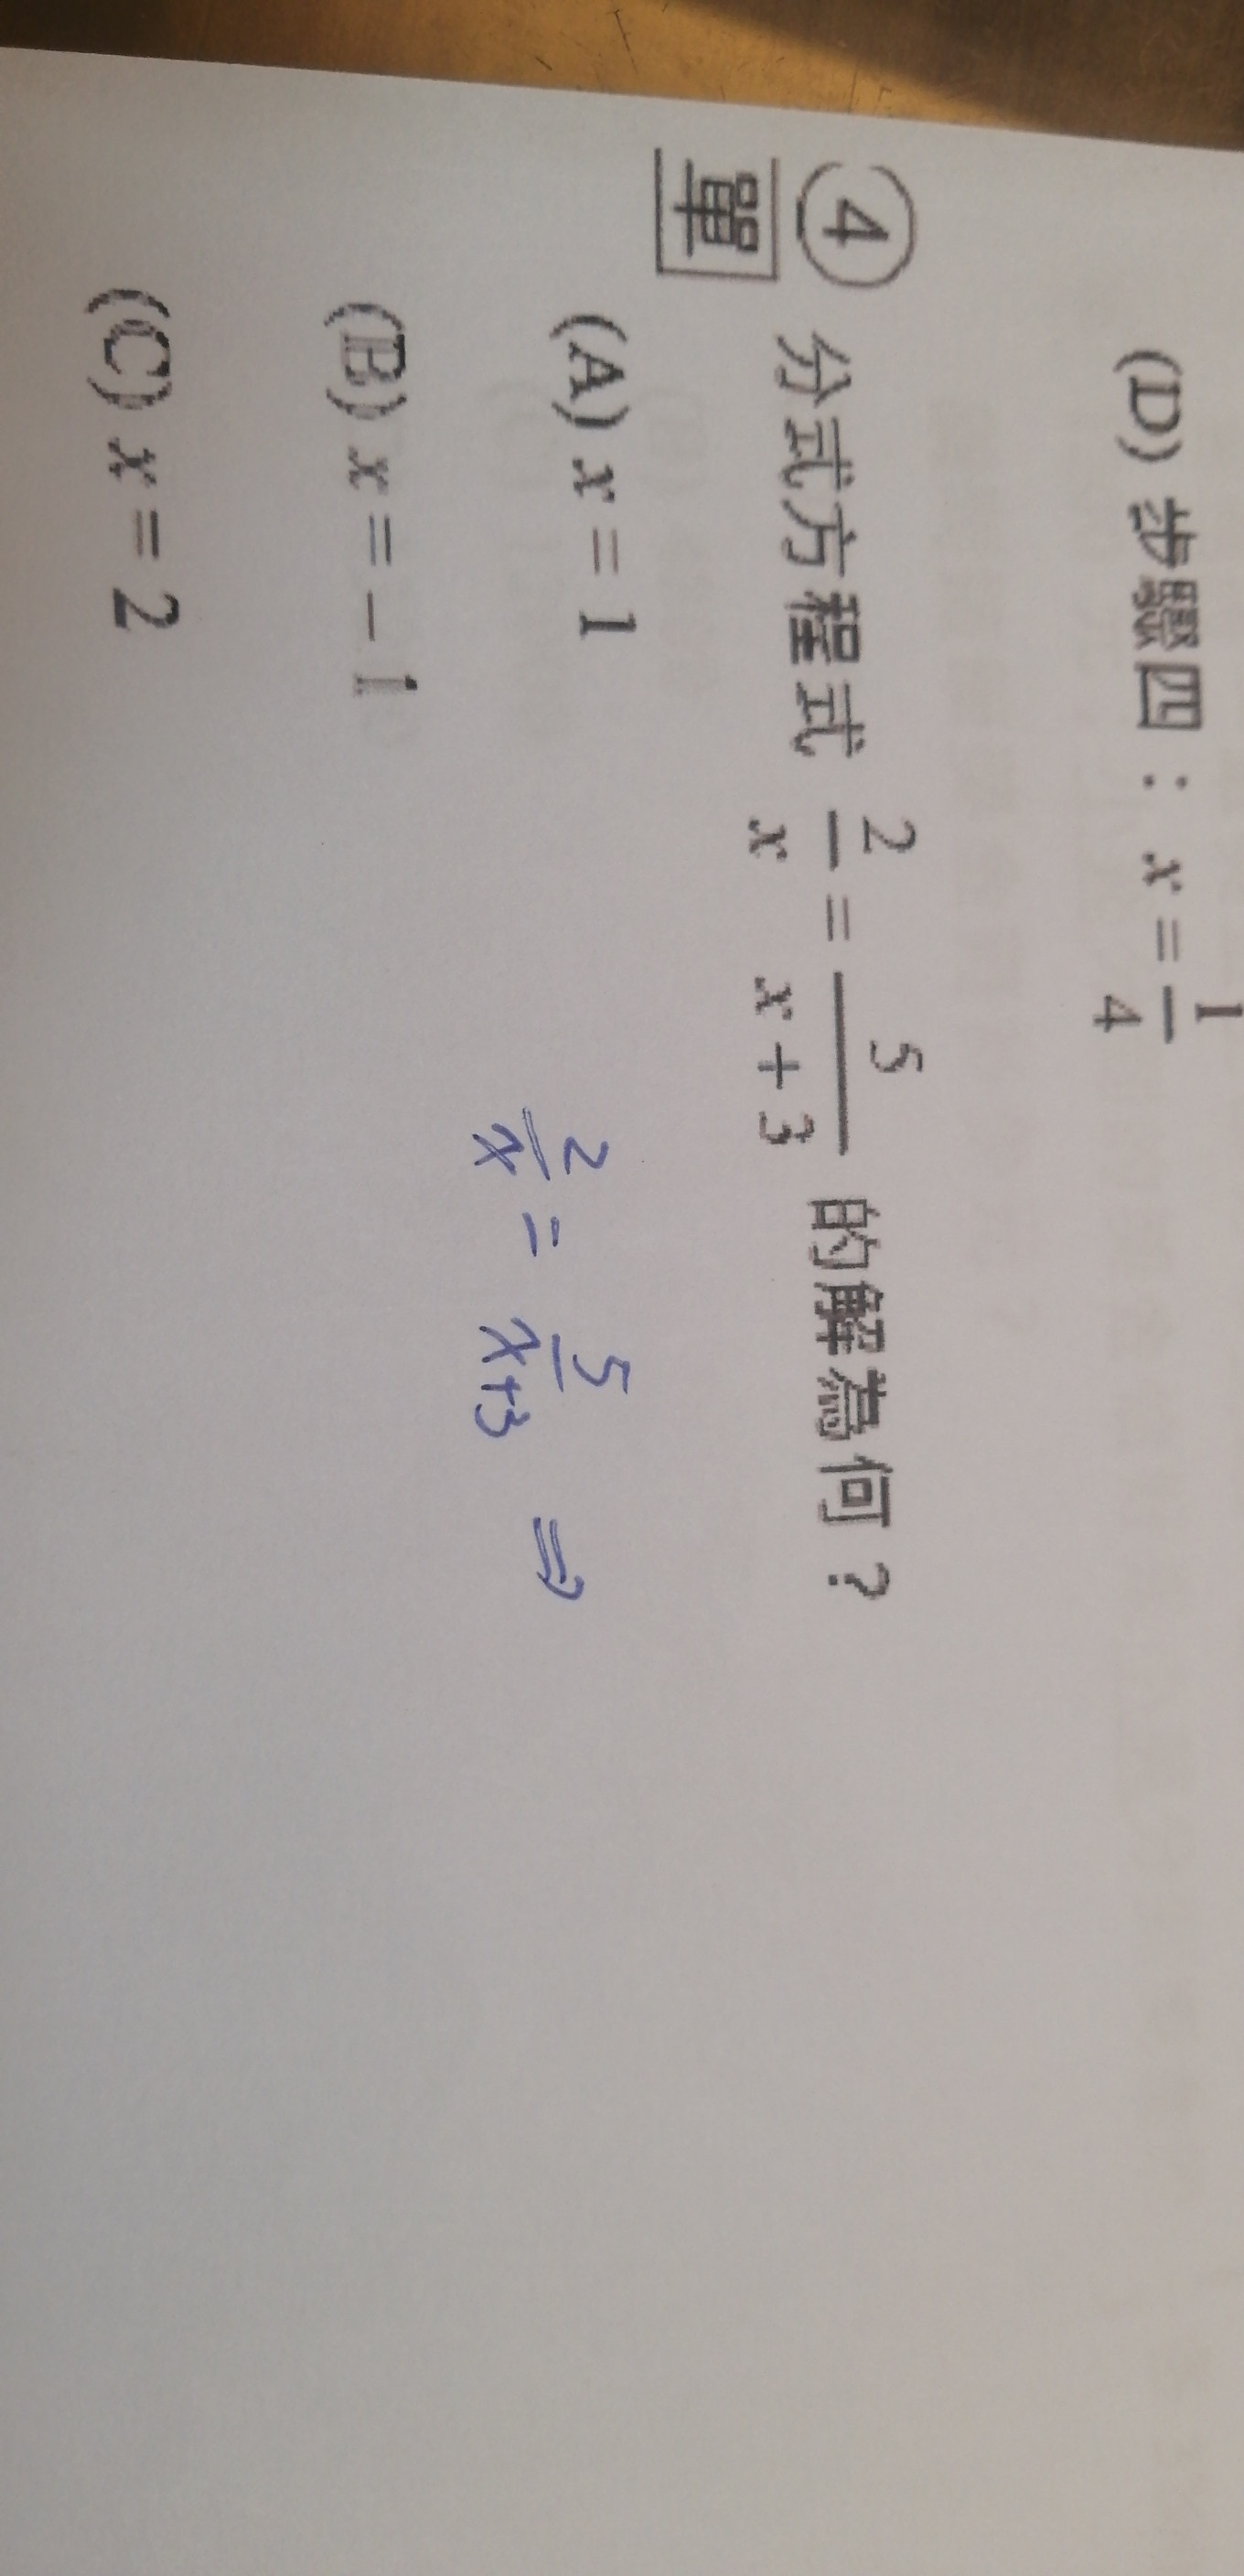 (D) 步驟四：x = 1/4
④ 分式方程式 2/x = 5/(x + 3) 的解為何？
單
(A) x = 1
2/x = 5/(x+3) ⇒
(B) x = -1
(C) x = 2